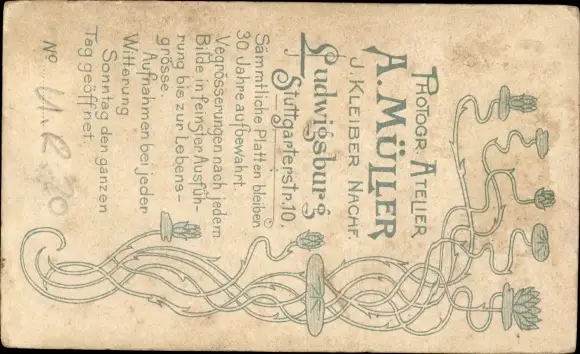 PHOTOGR. ATELIER
A. MÜLLER
J. KLEIBER NACHF.
Ludwigsburg
Stuttgarterstr. 10.
Sämmtliche Platten bleiben
30 Jahre aufbewahrt.
Vegrösserungen nach jedem
Bilde in feinster Ausfüh-
rung bis zur Lebens-
grösse.
Aufnahmen bei jeder
Witterung
Sonntag den ganzen
Tag geöffnet.
No.